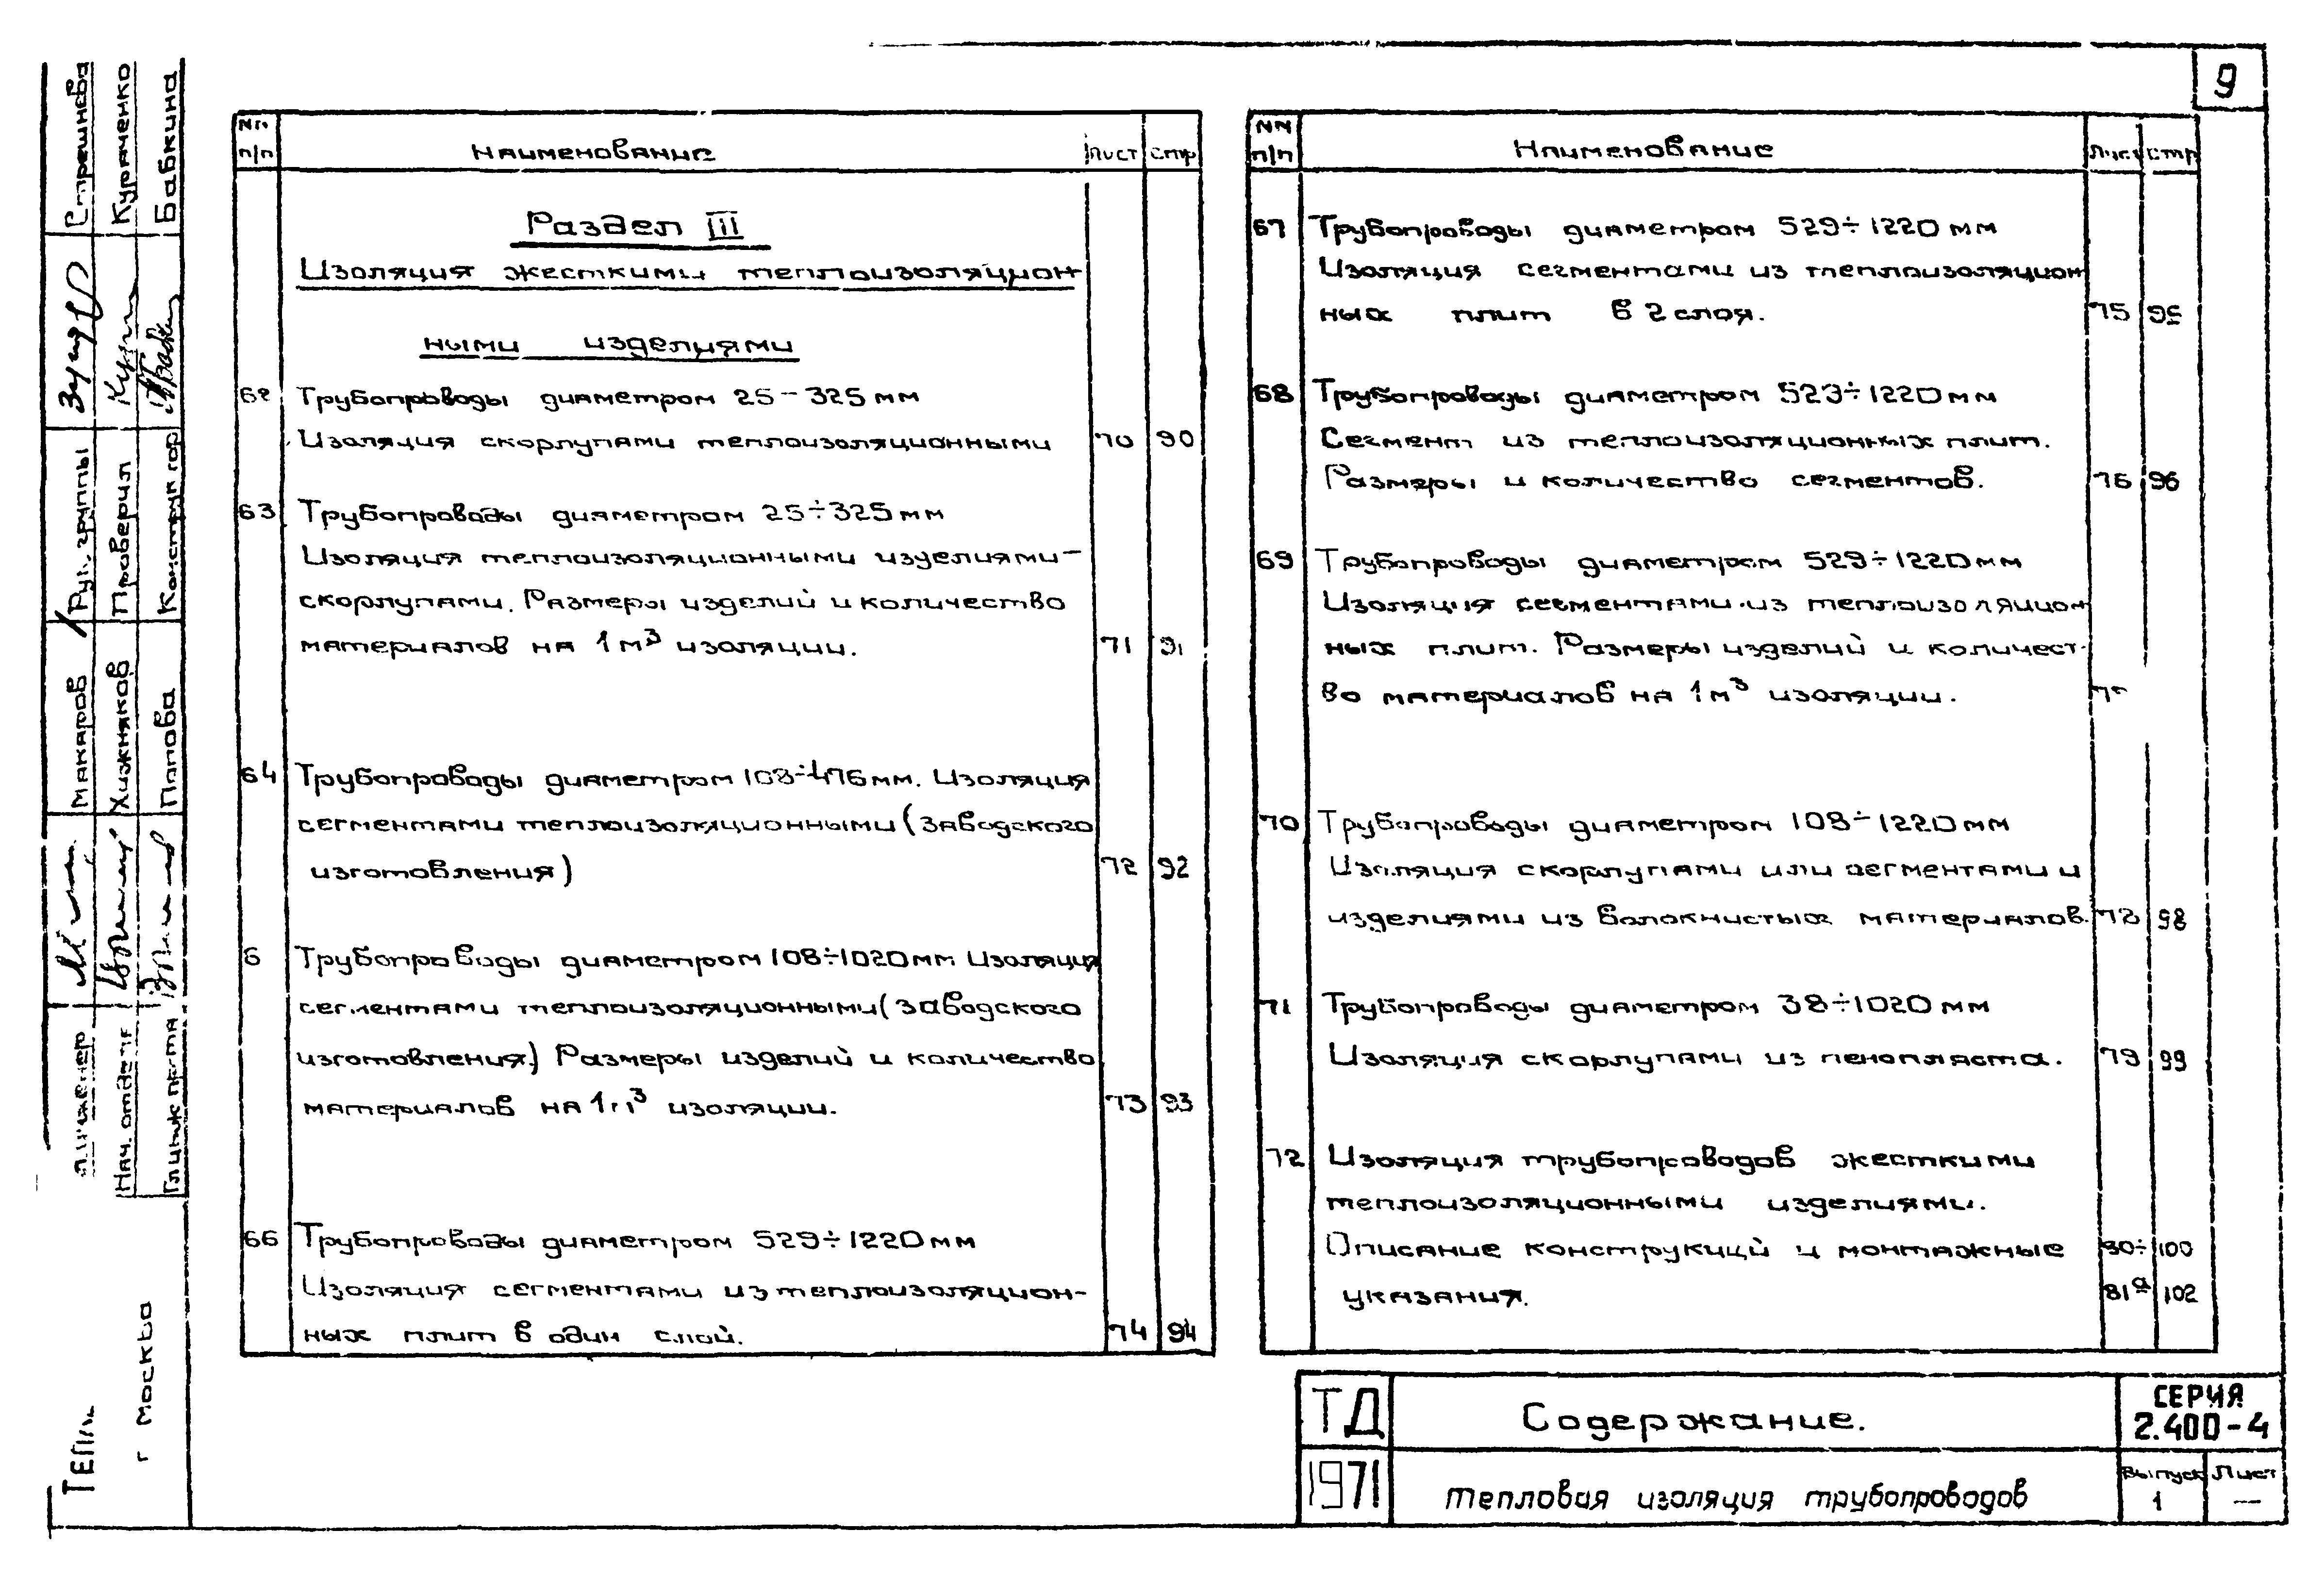 9
NN п/п Наименование Лист стр
Раздел III
Изоляция жесткими теплоизоляцион
ными изделиями
62 Трубопроводы диаметром 25-325 мм
Изоляция скорлупами теплоизоляционными 70 90
63 Трубопроводы диаметром 25÷325 мм
Изоляция теплоизоляционными изделиями-
скорлупами. Размеры изделий и количество
материалов на 1 м³ изоляции. 71 91
64 Трубопроводы диаметром 108÷476 мм. Изоляция
сегментами теплоизоляционными (заводского
изготовления) 72 92
6 Трубопроводы диаметром 108÷1020 мм Изоляция
сегментами теплоизоляционными (заводского
изготовления.) Размеры изделий и количество
материалов на 1 м³ изоляции. 73 93
66 Трубопроводы диаметром 529÷1220 мм
Изоляция сегментами из теплоизоляцион-
ных плит в один слой. 74 94
NN п/п Наименование Лист стр
67 Трубопроводы диаметром 529÷1220 мм
Изоляция сегментами из теплоизоляцион
ных плит в 2 слоя. 75 95
68 Трубопроводы диаметром 529÷1220 мм
Сегмент из теплоизоляционных плит.
Размеры и количество сегментов. 76 96
69 Трубопроводы диаметром 529÷1220 мм
Изоляция сегментами из теплоизоляцион
ных плит. Размеры изделий и количест-
во материалов на 1 м³ изоляции.
70 Трубопроводы диаметром 108÷1220 мм
Изоляция скорлупами или сегментами и
изделиями из волокнистых материалов. 78 98
71 Трубопроводы диаметром 38÷1020 мм
Изоляция скорлупами из пенопласта. 79 99
72 Изоляция трубопроводов жесткими
теплоизоляционными изделиями.
Описание конструкций и монтажные 80÷ 100
указания. 81а 102
ТД Содержание. СЕРИЯ
2.400-4
1971 Тепловая изоляция трубопроводов Выпуск Лист
1 —
Нач. отдела Хижняков Проверил Кураченко
Макаров Рук. группы Стрешнева
Гл. инж. пр-та Попова Конструктор Бабкина
г Москва